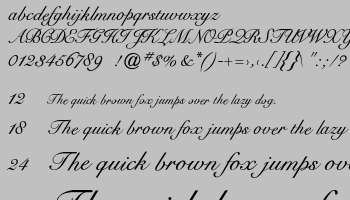 abcdefghijklmnopqrstuvwxyz
ABCDEFGHIJKLMNOPQRSTUVWXY
0123456789 !@#$%&*()-+=›,‹.[]{}\ ":;/?
12 The quick brown fox jumps over the lazy dog.
18 The quick brown fox jumps over the lazy
24 The quick brown fox jumps ov